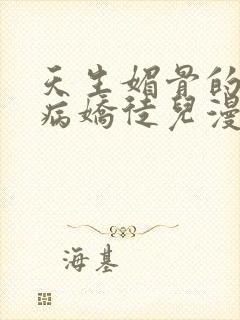 天生媚骨的
病嬌徒兒漫
海基